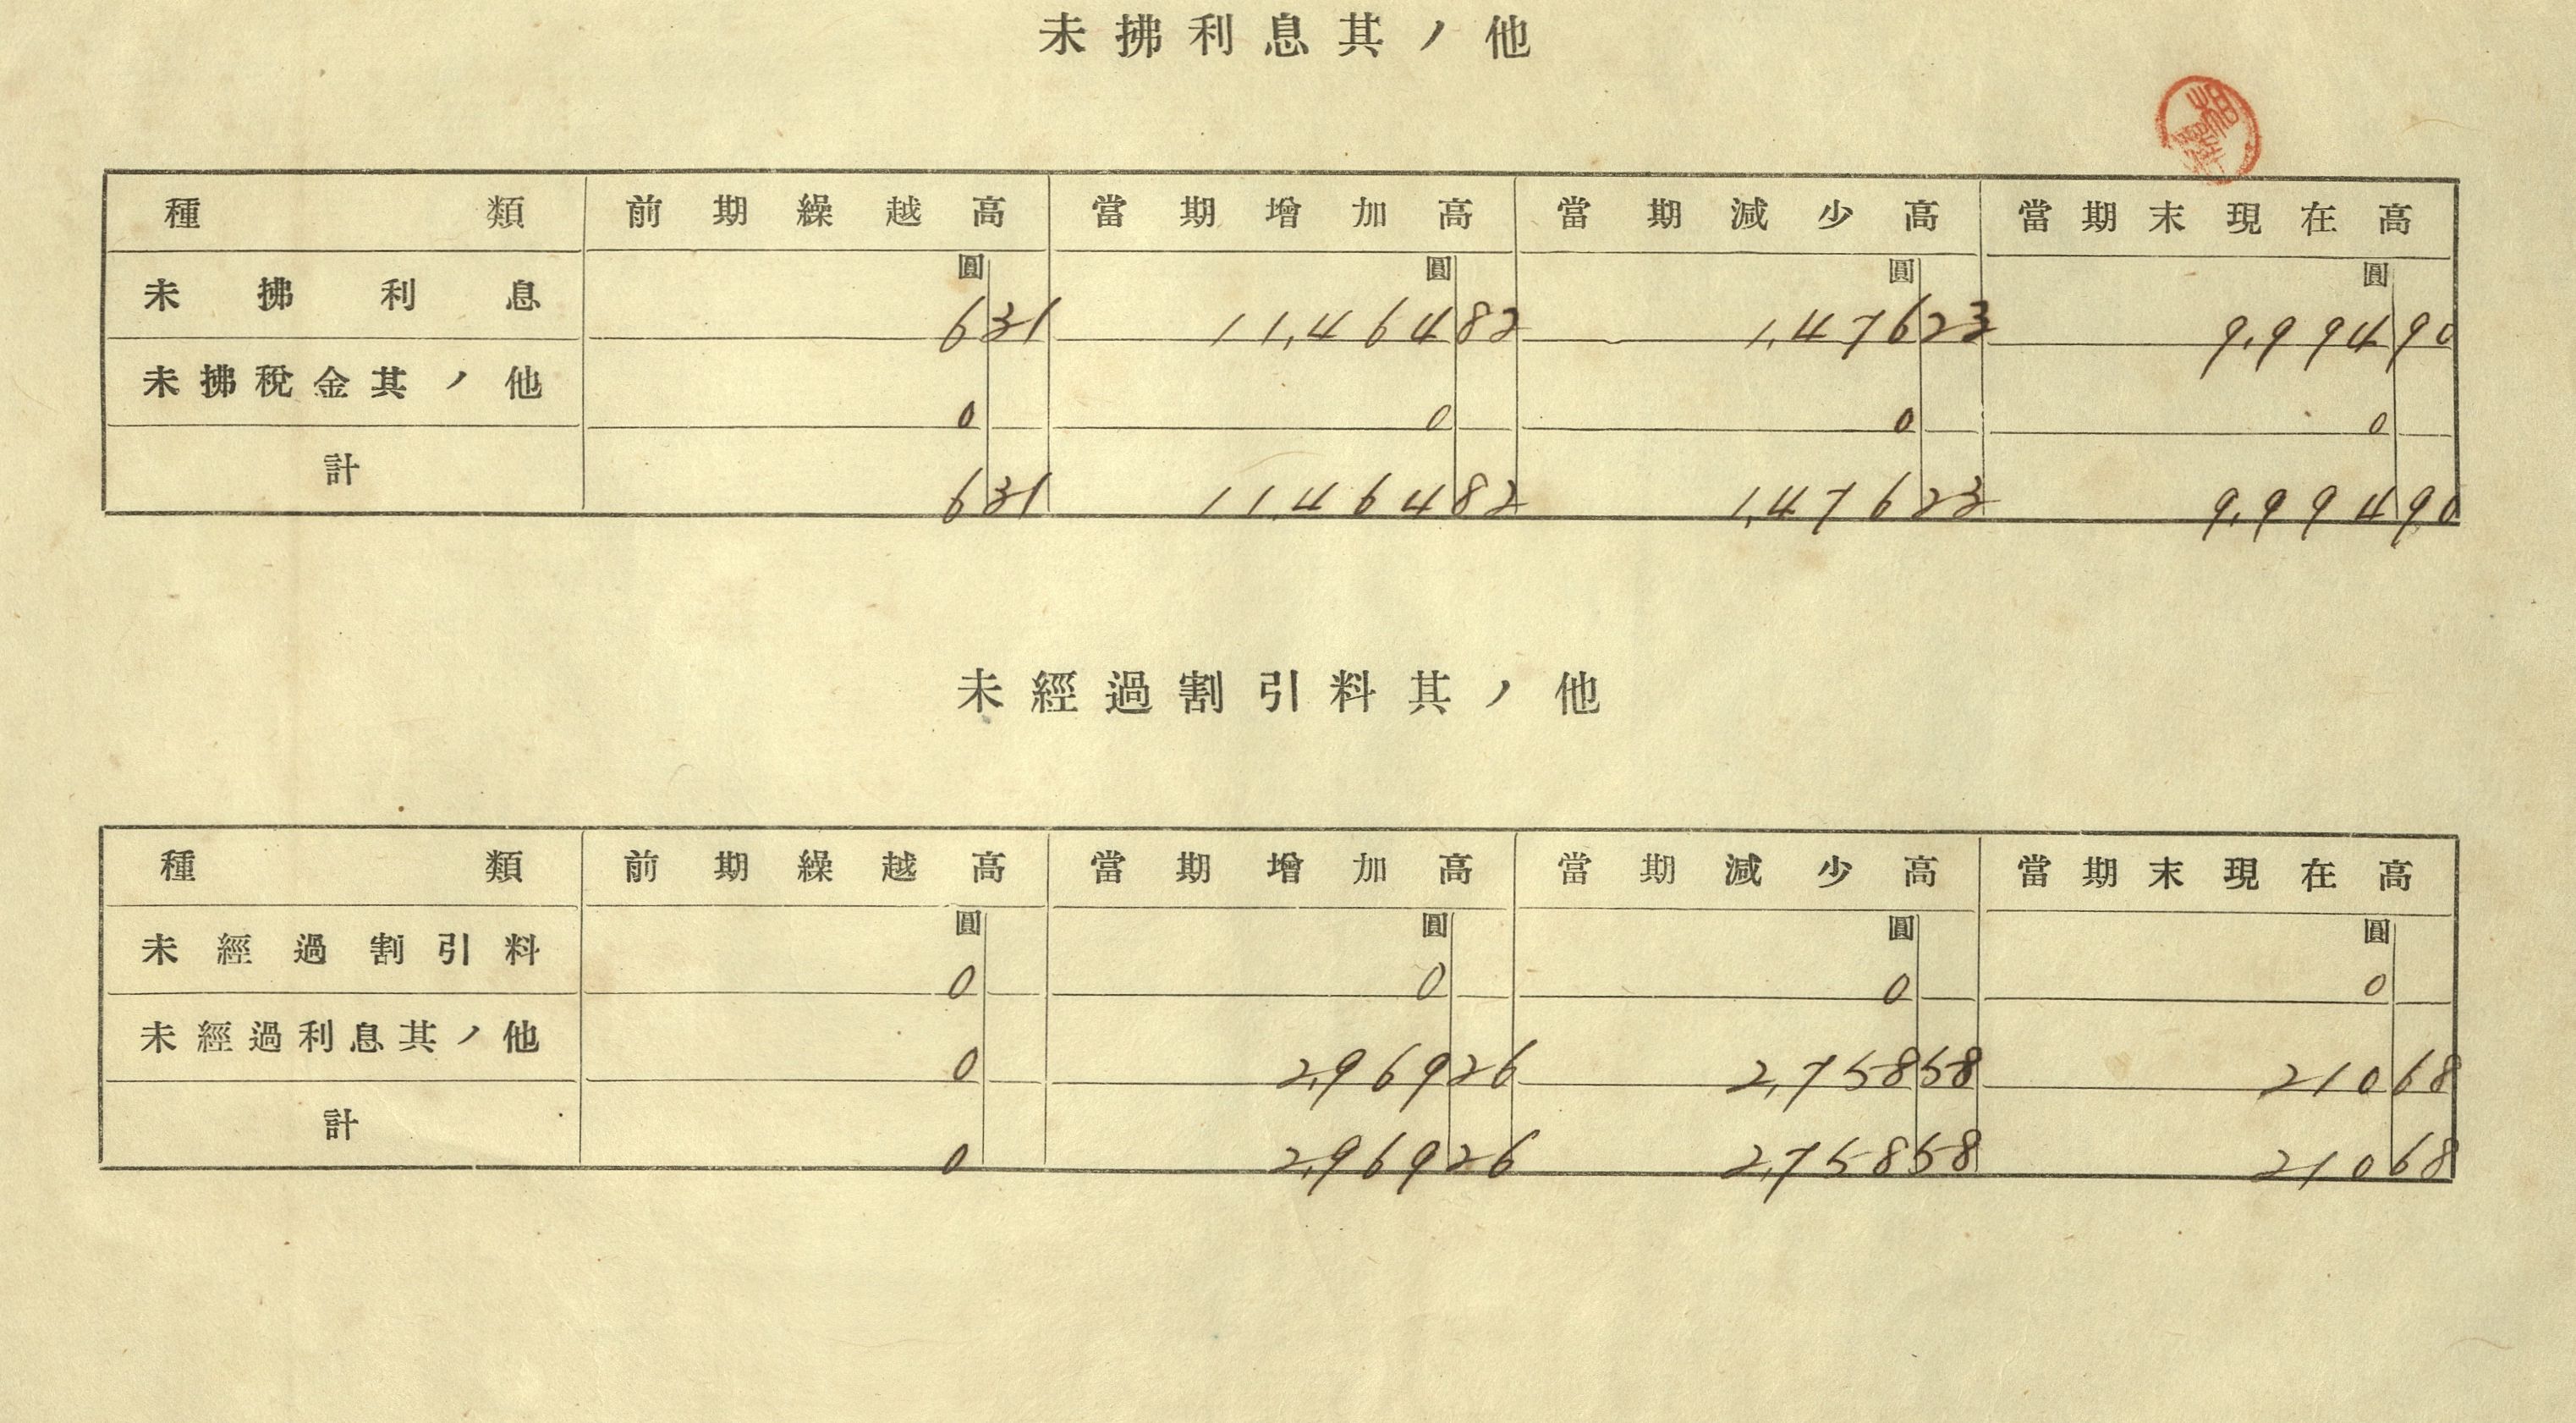 未拂利息其ノ他
種類 前期繰越高 當期増加高 當期減少高 當期末現在高
圓 圓 圓 圓
未拂利息 6 31 11,464 82 1,476 23 9,994 90
未拂稅金其ノ他 0 0 0 0
計 6 31 11,464 82 1,476 23 9,994 90
未經過割引料其ノ他
種類 前期繰越高 當期増加高 當期減少高 當期末現在高
圓 圓 圓 圓
未經過割引料 0 0 0 0
未經過利息其ノ他 0 2,969 26 2,758 58 210 68
計 0 2,969 26 2,758 58 210 68